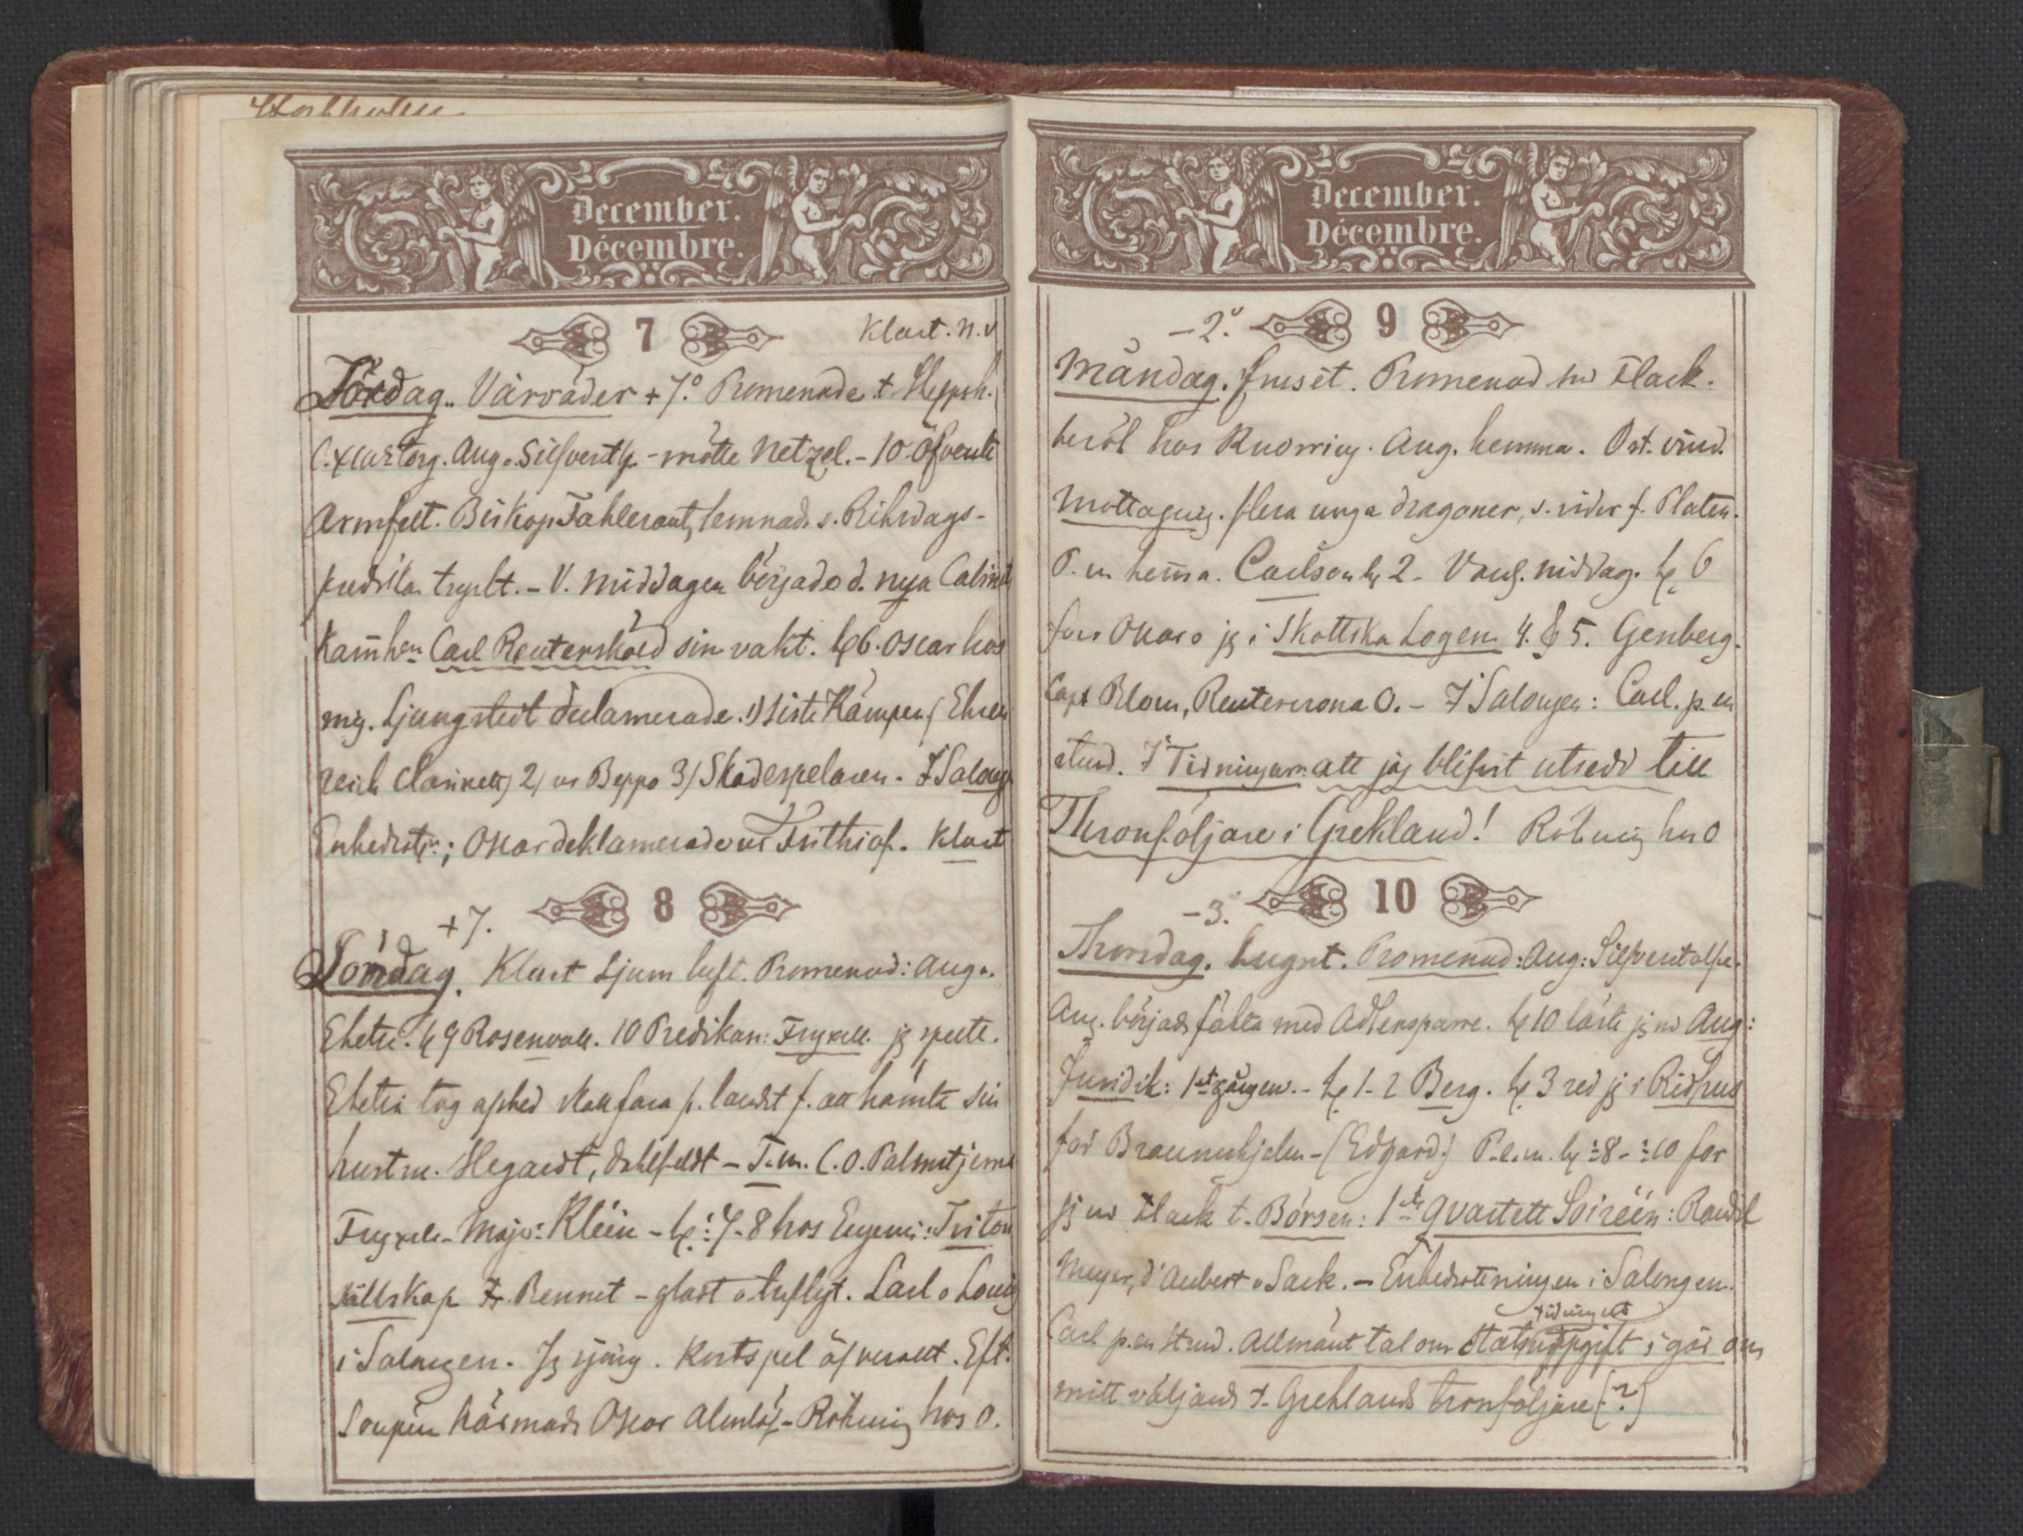 Stockholm
December.
Décembre.
7
Klart. N.v
Lördag. Vårväder +7.° Promenade t Skeppsh.
C. XIIIs torg. Aug. o. Silfverstlp. - mötte Netzel. - 10 Öfverste
Armfelt. Biskop Fahlcrantz lemnade s. Rihsdags-
predikan tryckt. - V. Middagen började d. nya Cabinets
Kam̄hen Carl Reuterskiöld sin vakt. kl 6. Oscar hos
mig. Ljungstedt declamerade. 1) Siste Kämpen (Ehren
reich clarinett) 2) ur Beppo 3) Skådespelaren. I Salong
Enhedrotn; Oscar deklamerade ur Frithiof. Klart
8
+7.
Söndag. Klart Ljum luft. Promenad: Aug.
kl 9 Rosenvall. 10 Predikan: Fryxell. jg
tog afsked skall fara p. landet f. att hämta sin
hustru. Hegardt, Dahlfeldt - F.m. C.O. Palmstjerna
Fryxell - Major Kléin - kl 7-8 hos Eugenie: Triton
sällskap Fr. Bennet - gladt o lufligt. Carl o Louis
i Salongen. Jg sjöng. Kortspel öfverallt. Eft.
Soupén härmade Oscar Almlöf - Röhmig hos O.
December.
Décembre.
9
-2.°
Måndag. fruset. Promenad m Flack.
besök hos Knorring. Aug. hemma. Ost. vind.
Mottagng. flera unga dragoner, s. rider f. Platen.
P. m hem̄a. Carlson kl 2 - Vanl. middag. kl 6
foro Oscar o jg i Skottska Logen 4. & 5. Genberg.
Capt Blom, Reutercrona O. - I Salongen: Carl. p. en
stund. I Tidningarn: att jag blifvit utsedd till
Thronföljare i Grekland! Röhmig hos O
10
-3.°
Thorsdag. Lugnt. Promenad: Aug: Silfverstolpe.
Aug. började fäkta med Adlersparre. kl 10 läste jg m Aug:
Juridik: 1sta gången. - kl 1-2 Berg. kl 3 red jg i Ridhus
for Braunerhjelm - (Edgard) P. e. m. kl 8 - 10 for
jg m Flack t. Börsen: 1sta qvartett Soiréen: Randel
Meyer, d'Aubert o Sack. - Enhedrottningen i Salongen.
tidningarnes
Carl p. en stund. Allmänt tal om uppgift i går om
mitt väljande t. Greklands tronföljare (?)